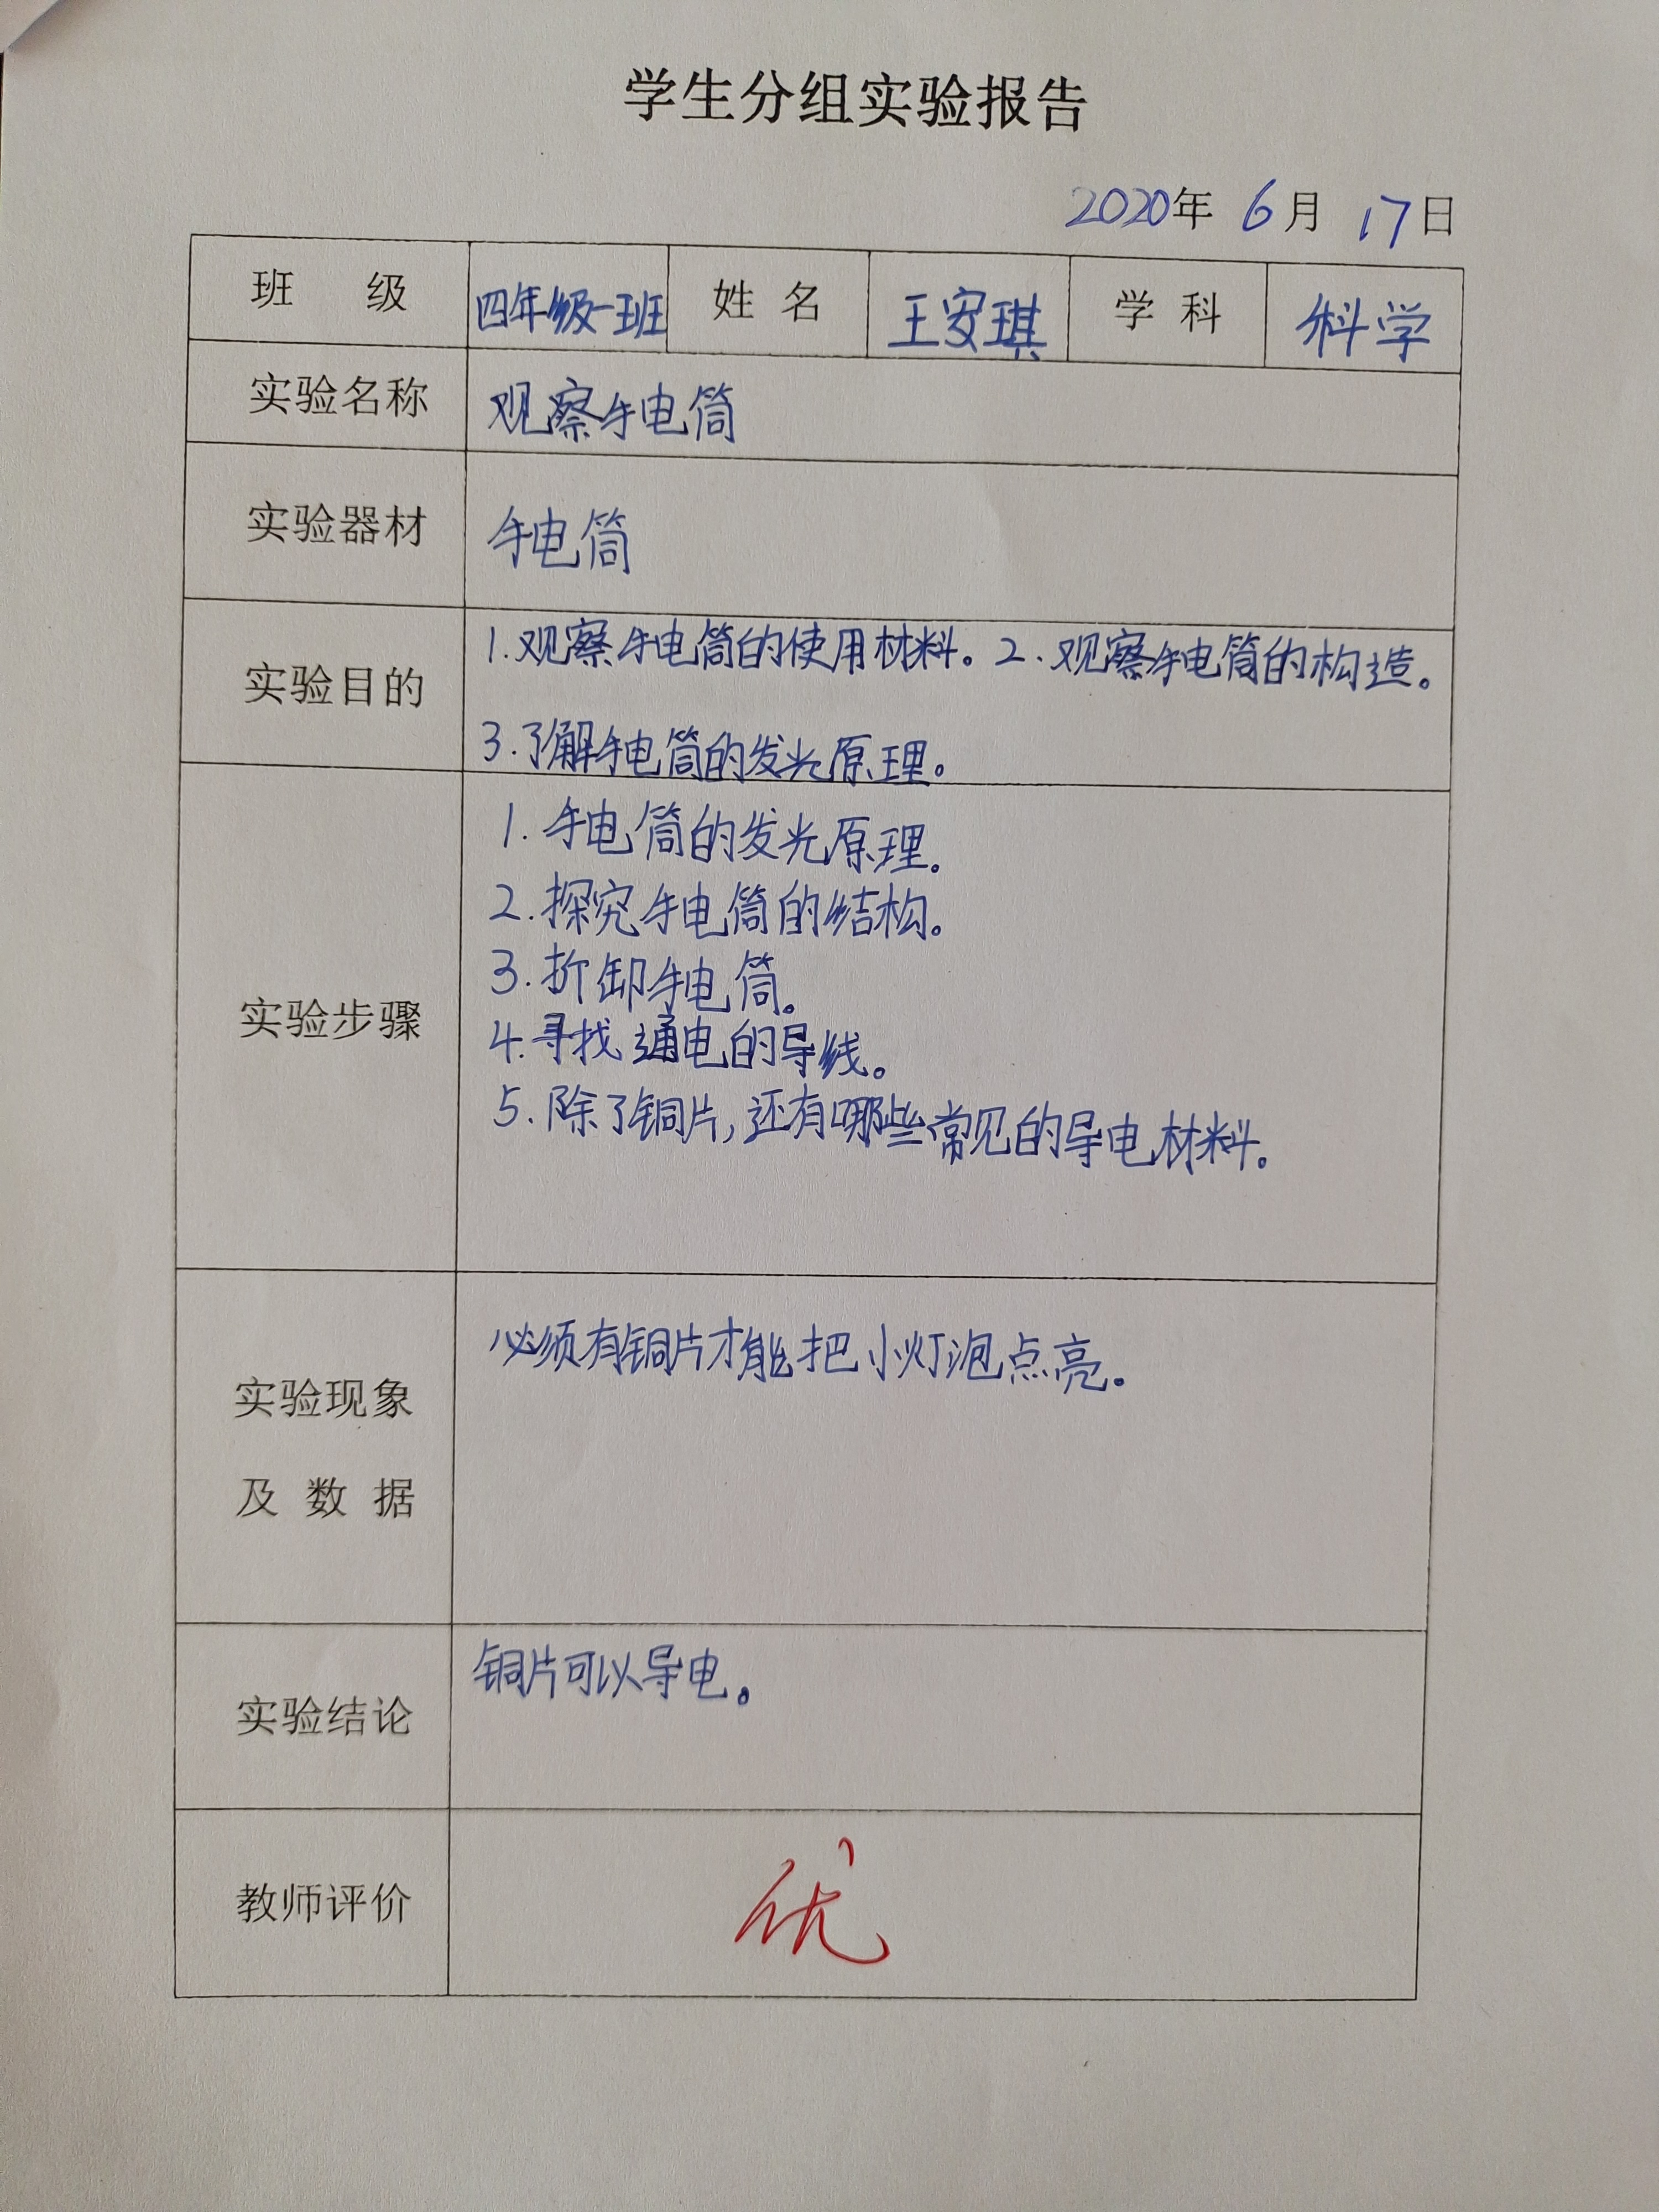 学生分组实验报告
2020年 6月 17日
班 级 四年级一班 姓 名 王安琪 学 科 科学
实验名称 观察手电筒
实验器材 手电筒
实验目的 1.观察手电筒的使用材料。2.观察手电筒的构造。
3.了解手电筒的发光原理。
实验步骤
1.手电筒的发光原理。
2.探究手电筒的结构。
3.折卸手电筒。
4.寻找通电的导线。
5.除了铜片,还有哪些常见的导电材料。
实验现象
及 数 据
必须有铜片才能把小灯泡点亮。
实验结论 铜片可以导电。
教师评价 优